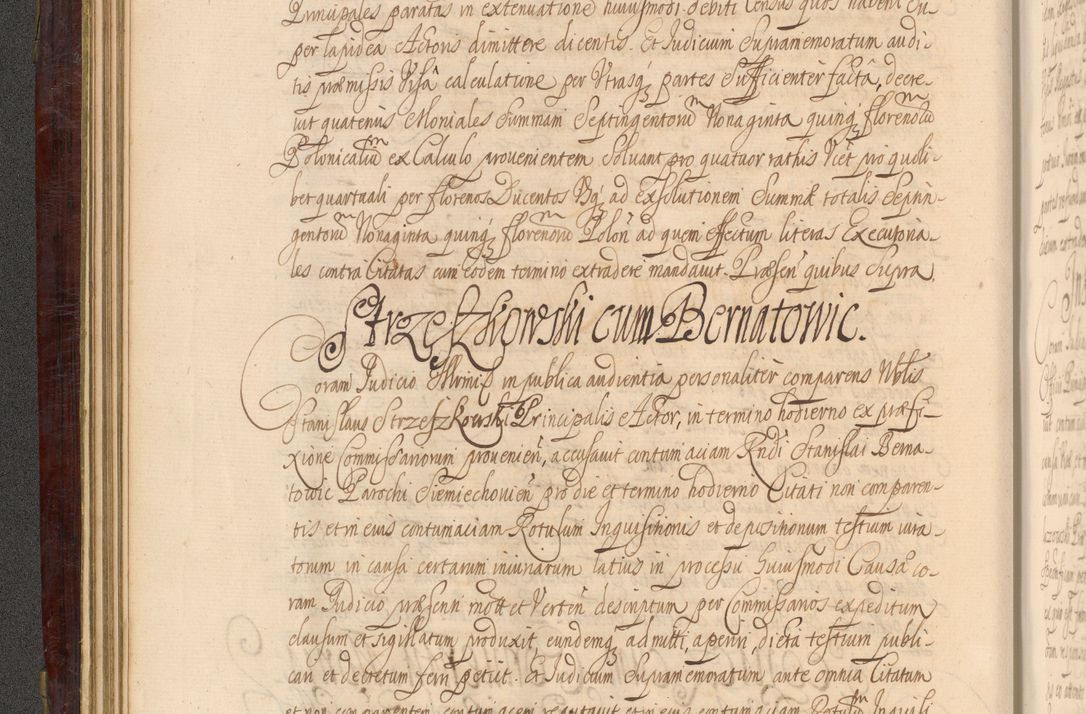 Principales paratas in extenuatione huiusmodi debiti Census quos habent Su-
per lapidea Actoris dimittere dicentis. Et Iudicium Supramemoratum audi-
tis præmissis Visâ calculatione per Utrasq; partes Sufficienter factâ, decre-
uit quatenus Moniales Summam Septingentorũ Nonaginta quinq; florenorũ
Polonicaliũ ex Calculo prouenientem Soluant pro quatuor rathis Vcet pro quoli-
bet quartuali per florenos Ducentos Vsq; ad Exsolutionem Summæ totalis Septin-
gentorũ Nonaginta quinq; florenorũ Polon̄ ad quem effectum literas Executoria-
les contra Citatas cum eodem termino extradere mandauit. Præsen̄ quibus Supra
Strzeszkowski cum Bernatowic.
Coram Iudicio Illrmis in publica audientia personaliter comparens Nblis
Stanislaus Strzeszkowski Principalis Actor, in termino hodierno ex præfi-
xione Commissariorum prouenien̄, accusauit contumaciam Rndi Stanislai Berna-
towic Parochi Siemiechouien̄ pro die et termino hodierno Citati non comparen-
tis et in eius contumaciam Rotulum Inquisitionis et depositionum testium iura-
torum in causa certarum iniuriarum latius in processu huiusmodi Causæ co-
ram Iudicio præsenti mott et Verten̄ descriptum per Commissarios expeditum
clausum et sigillatum produxit, eundemq; admitti, aperiri, dicta testium publi-
cari et decretum ferri petiit. Et Iudicium Supramemoratum ante omnia Citatum
et non comparentem contumacem reputauit et in eius contumaciam Rotulũ Inquisi